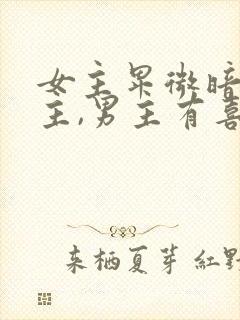 女主卑微暗
主,男主有喜
来栖夏芽 紅野